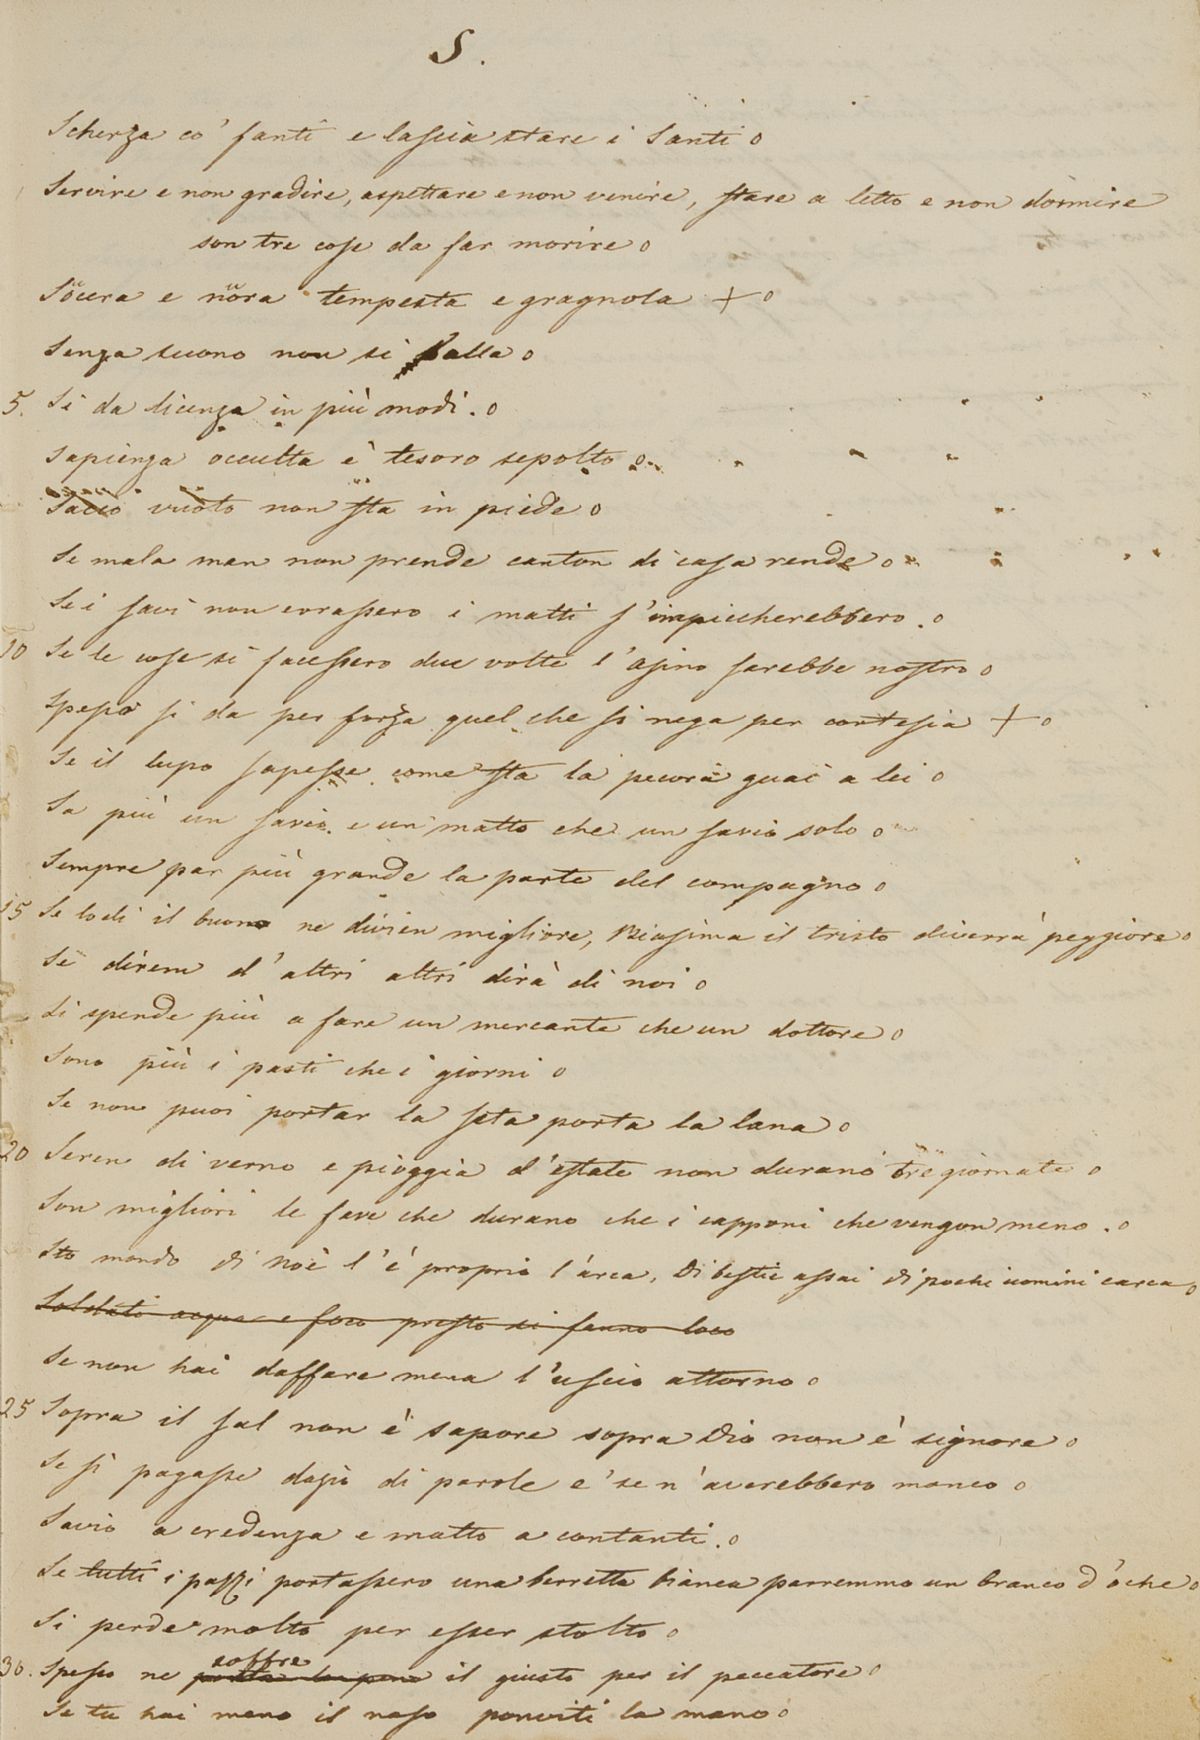 S.
Scherza co' fanti e lascia stare i Santi o
Servire e non gradire, aspettare e non venire, stare a letto e non dormire
son tre cose da far morire o
Sŏcera e nŏra tempesta e gragnola + o
Senza suono non si balla o
5. Si da licenza in più modi. o
Sapienza occulta è tesoro sepolto o
Sacco vuoto non sta in piede o
Se mala man non prende canton di casa rende o
Se i savi non errassero i matti s'impiccherebbero. o
10 Se le cose si facessero due volte l'asino sarebbe nostro o
Spesso si da per forza quel che si nega per cortesia + o
Se il lupo sapesse come sta la pecora guai a lei o
Sa più un savio e un matto che un savio solo o
Sempre par più grande la parte del compagno o
15 Se lodi il buono ne divien migliore, Biasima il tristo diverrà peggiore o
Se direm d'altri altri dirà di noi o
Si spende più a fare un mercante che un dottore o
Sono più i pasti che i giorni o
Se non puoi portar la seta porta la lana o
20 Seren di verno e pioggia d'estate non durano tre giornate o
Son migliori le fave che durano che i capponi che vengon meno. o
Sto mondo di Noè l'è proprio l'arca, Di bestie assai di pochi uomini carca o
Soldati acqua e foco presto si fanno loco
Se non hai daffare mena l'uscio attorno o
25 Sopra il sal non è sapore sopra Dio non è signore o
Se si pagasse dazio di parole e' se n'averebbero manco o
Savio a credenza e matto a contanti. o
Se tutti i pazzi portassero una berretta bianca parremmo un branco d'oche o
Si perde molto per esser stolto o
soffre
30. Spesso ne porta la pena il giusto per il peccatore o
Se tu hai meno il naso ponviti la mano o